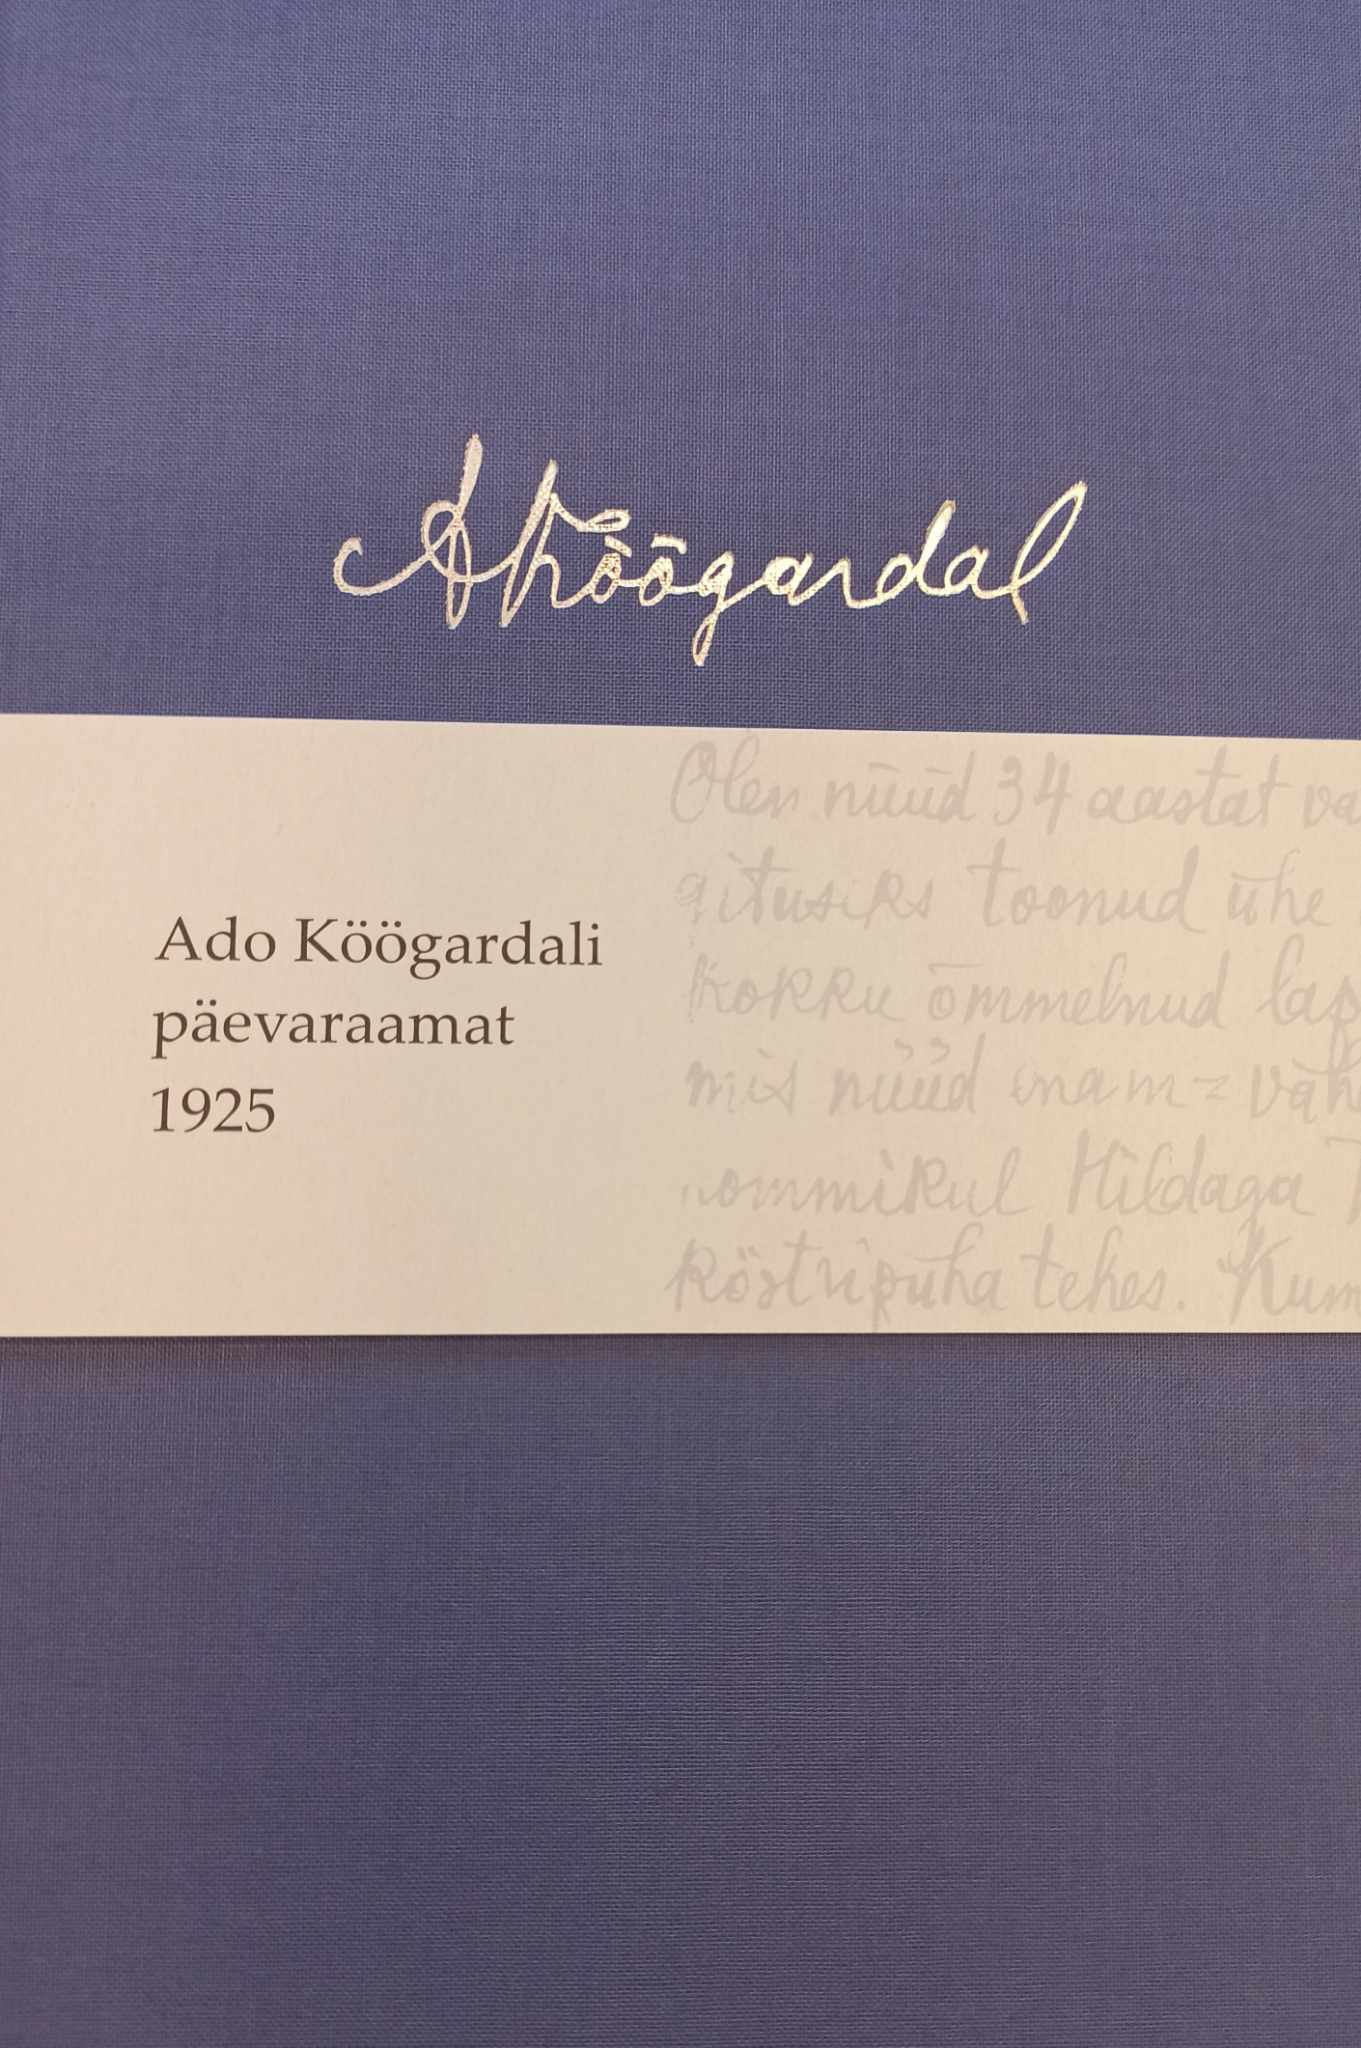 AKöögardal
Ado Köögardali
päevaraamat
1925
Olen nüüd 34 aastat va
toonud ühe
kokku õmmelnud lap
mis nüüd enam=väh
Hildaga
köstripüha tehes. Kum